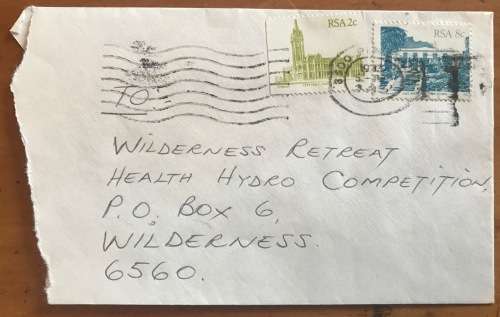 RSA 2c
RSA 8c
TO
WILDERNESS RETREAT
HEALTH HYDRO COMPETITION,
P.O. BOX 6,
WILDERNESS.
6560.